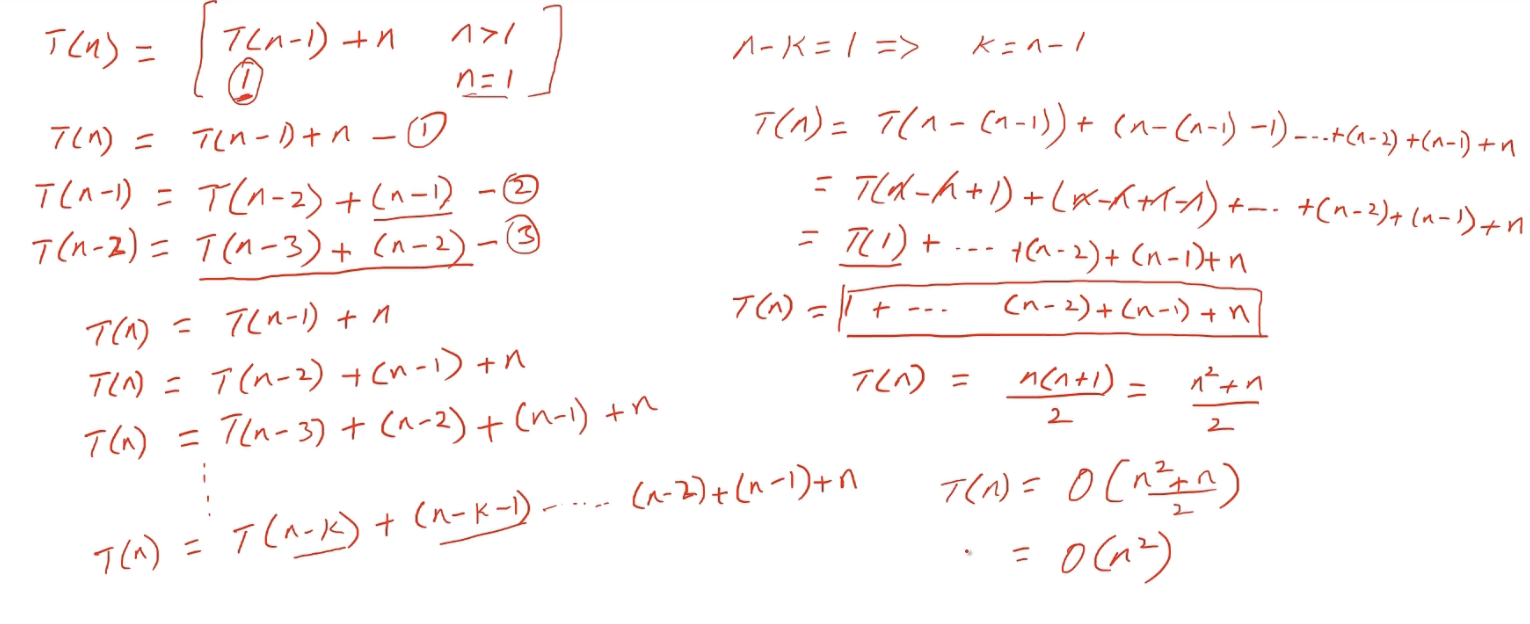 T(n) = [ T(n-1) + n   n>1
① n=1 ]
T(n) = T(n-1)+n - ①
T(n-1) = T(n-2) + (n-1) - ②
T(n-2) = T(n-3) + (n-2) - ③
T(n) = T(n-1) + n
T(n) = T(n-2) + (n-1) + n
T(n) = T(n-3) + (n-2) + (n-1) + n
T(n) = T(n-k) + (n-k-1) ...... (n-2)+(n-1)+n
n-k=1 => k=n-1
T(n) = T(n-(n-1)) + (n-(n-1)-1)-----+(n-2)+(n-1)+n
= T(n-n+1) + (n-n+1-1) +--- +(n-2)+(n-1)+n
= T(1) + ---- +(n-2)+(n-1)+n
T(n) = 1 + --- (n-2)+(n-1)+n
T(n) = n(n+1)/2 = n²+n/2
T(n) = O(n²+n/2)
= O(n²)